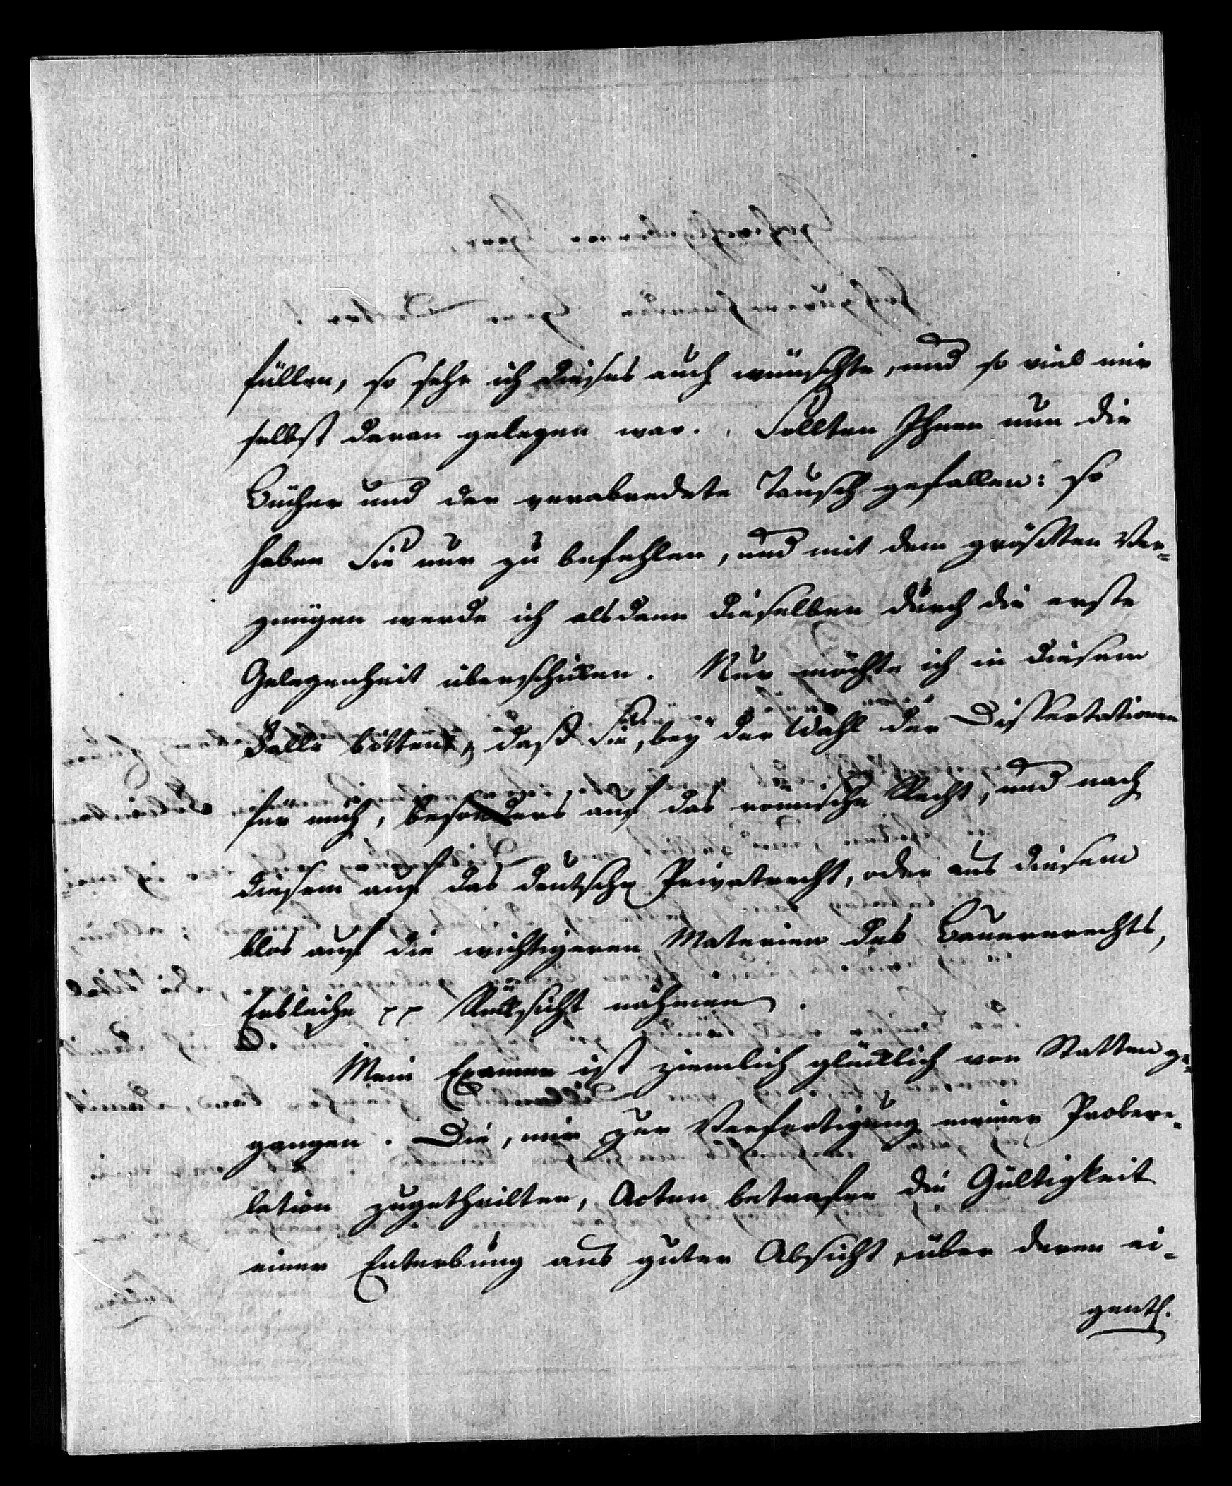 füllen, so sehr ich dieses auch wünschte, und so viel mir
selbst daran gelegen war. Sollten Ihnen nun die
Bücher und der verabredete Tausch gefallen: so
haben Sie nur zu befehlen, und mit dem größten Ver-
gnügen werde ich alsdann dieselben durch die erste
Gelegenheit überschiken. Nur möchte ich in diesem
Falle bitten, daß Sie, bey der Wahl der Dissertationen
für mich, besonders auf das römische Recht, und nach
diesem auf das deutsche Privatrecht, oder aus diesem
blos auf die wichtigeren Materien des Bauernrechts,
Erbleihe pp Rüksicht nähmen.
Mein Examen ist ziemlich glücklich von Statten ge-
gangen. Die, mir zur Verfertigung meiner Probere-
lation zugetheilten, Acten betrafen die Gültigkeit
einer Enterbung aus guter Absicht, über deren ei-
gentl.